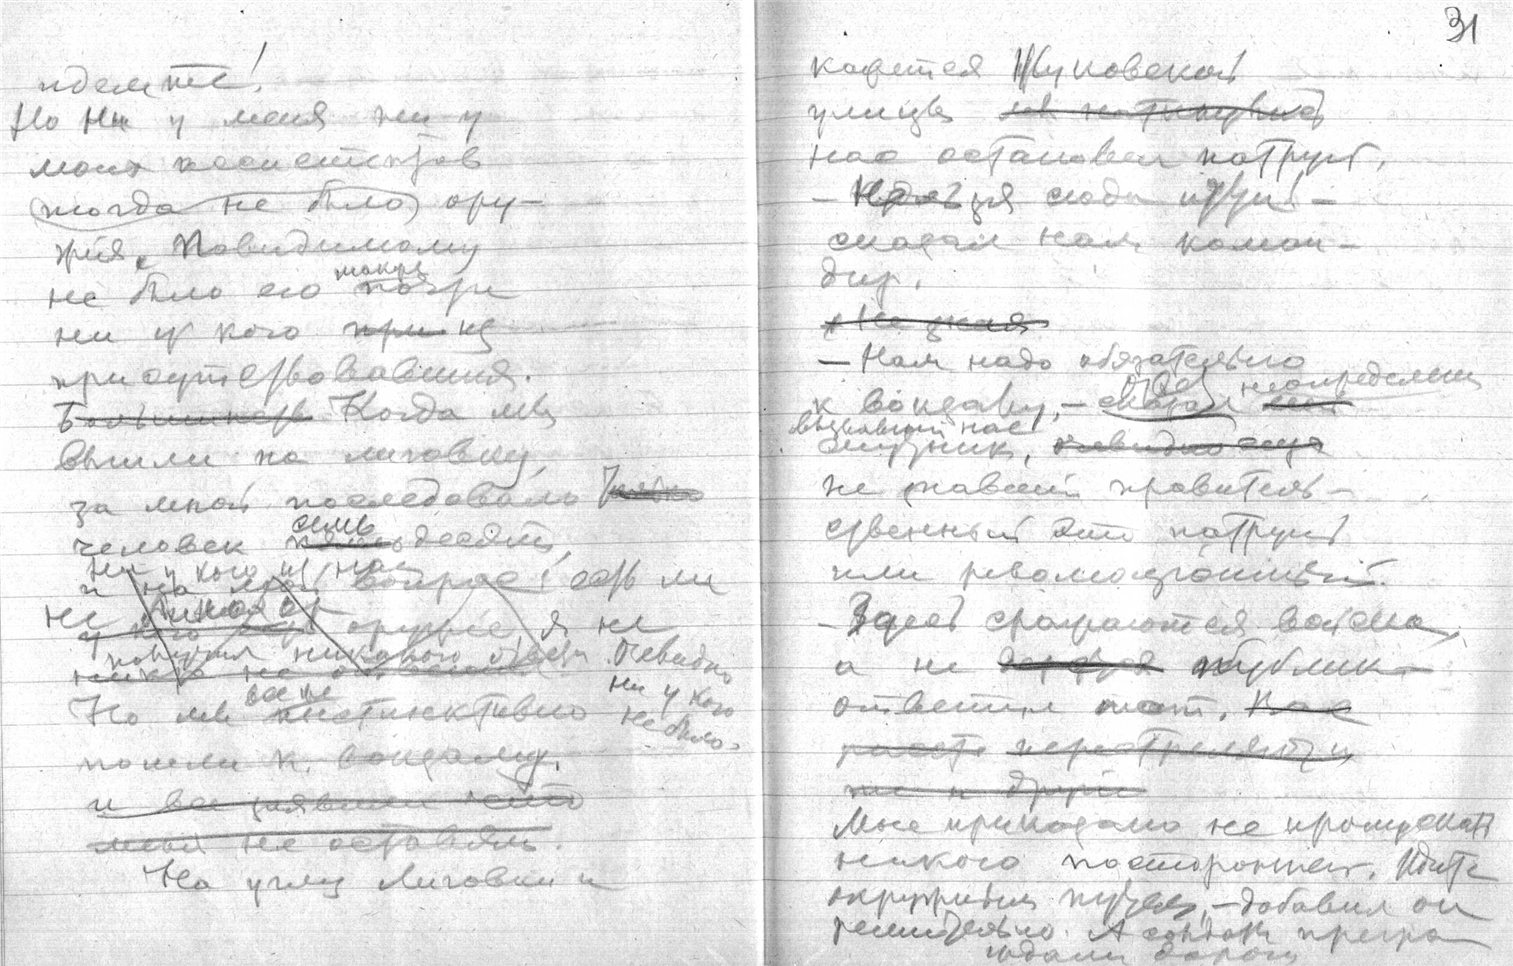 идемте!
Но ни у меня ни у
моих ассистентов
(тогда не было) ору-
жия. Повидимому
не было его также
почти
ни у кого при из
присутствовавших.
Большинств Когда мы
вышли на лиговку,
за мной последовало
человек семь десят,
ни у кого из нас
и на мой вопрос: есть ли
не
у кого оружие, я не
получил никакого ответа. Очевидно
ни у кого
не было.
никто не
Но мы все же инстинктивно
пошли к вокзалу.
и все
мной не оставят.
На углу Лиговки и
31
кажется Жуковской
улицы
нас остановил патруль.
— Нельзя сюда идти —
сказал нам коман-
дир.
Не зная
— Нам надо обязательно
к вокзалу, — сказал неопределенно
вызвавший нас
спутник, очевидно еще
не знавший правитель-
ственный это патруль
или революционный.
— Здесь сражаются войска,
а не публика —
ответил тот. Нас
перестрелять и
Мне приказано не пропускать
никого посторонних. Идите
окружным путем, — добавил он
решительно. А солдаты прегра
ждали дорогу